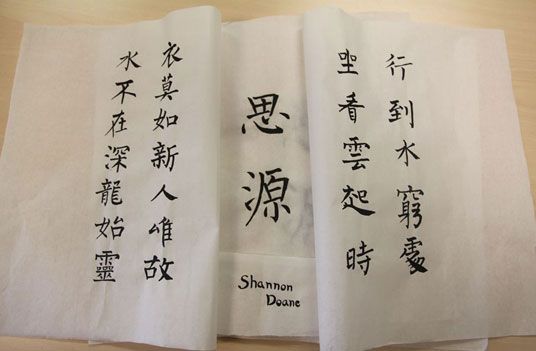 行到水窮處
坐看雲起時
思源
Shannon
Doane
衣莫如新人唯故
水不在深龍始靈